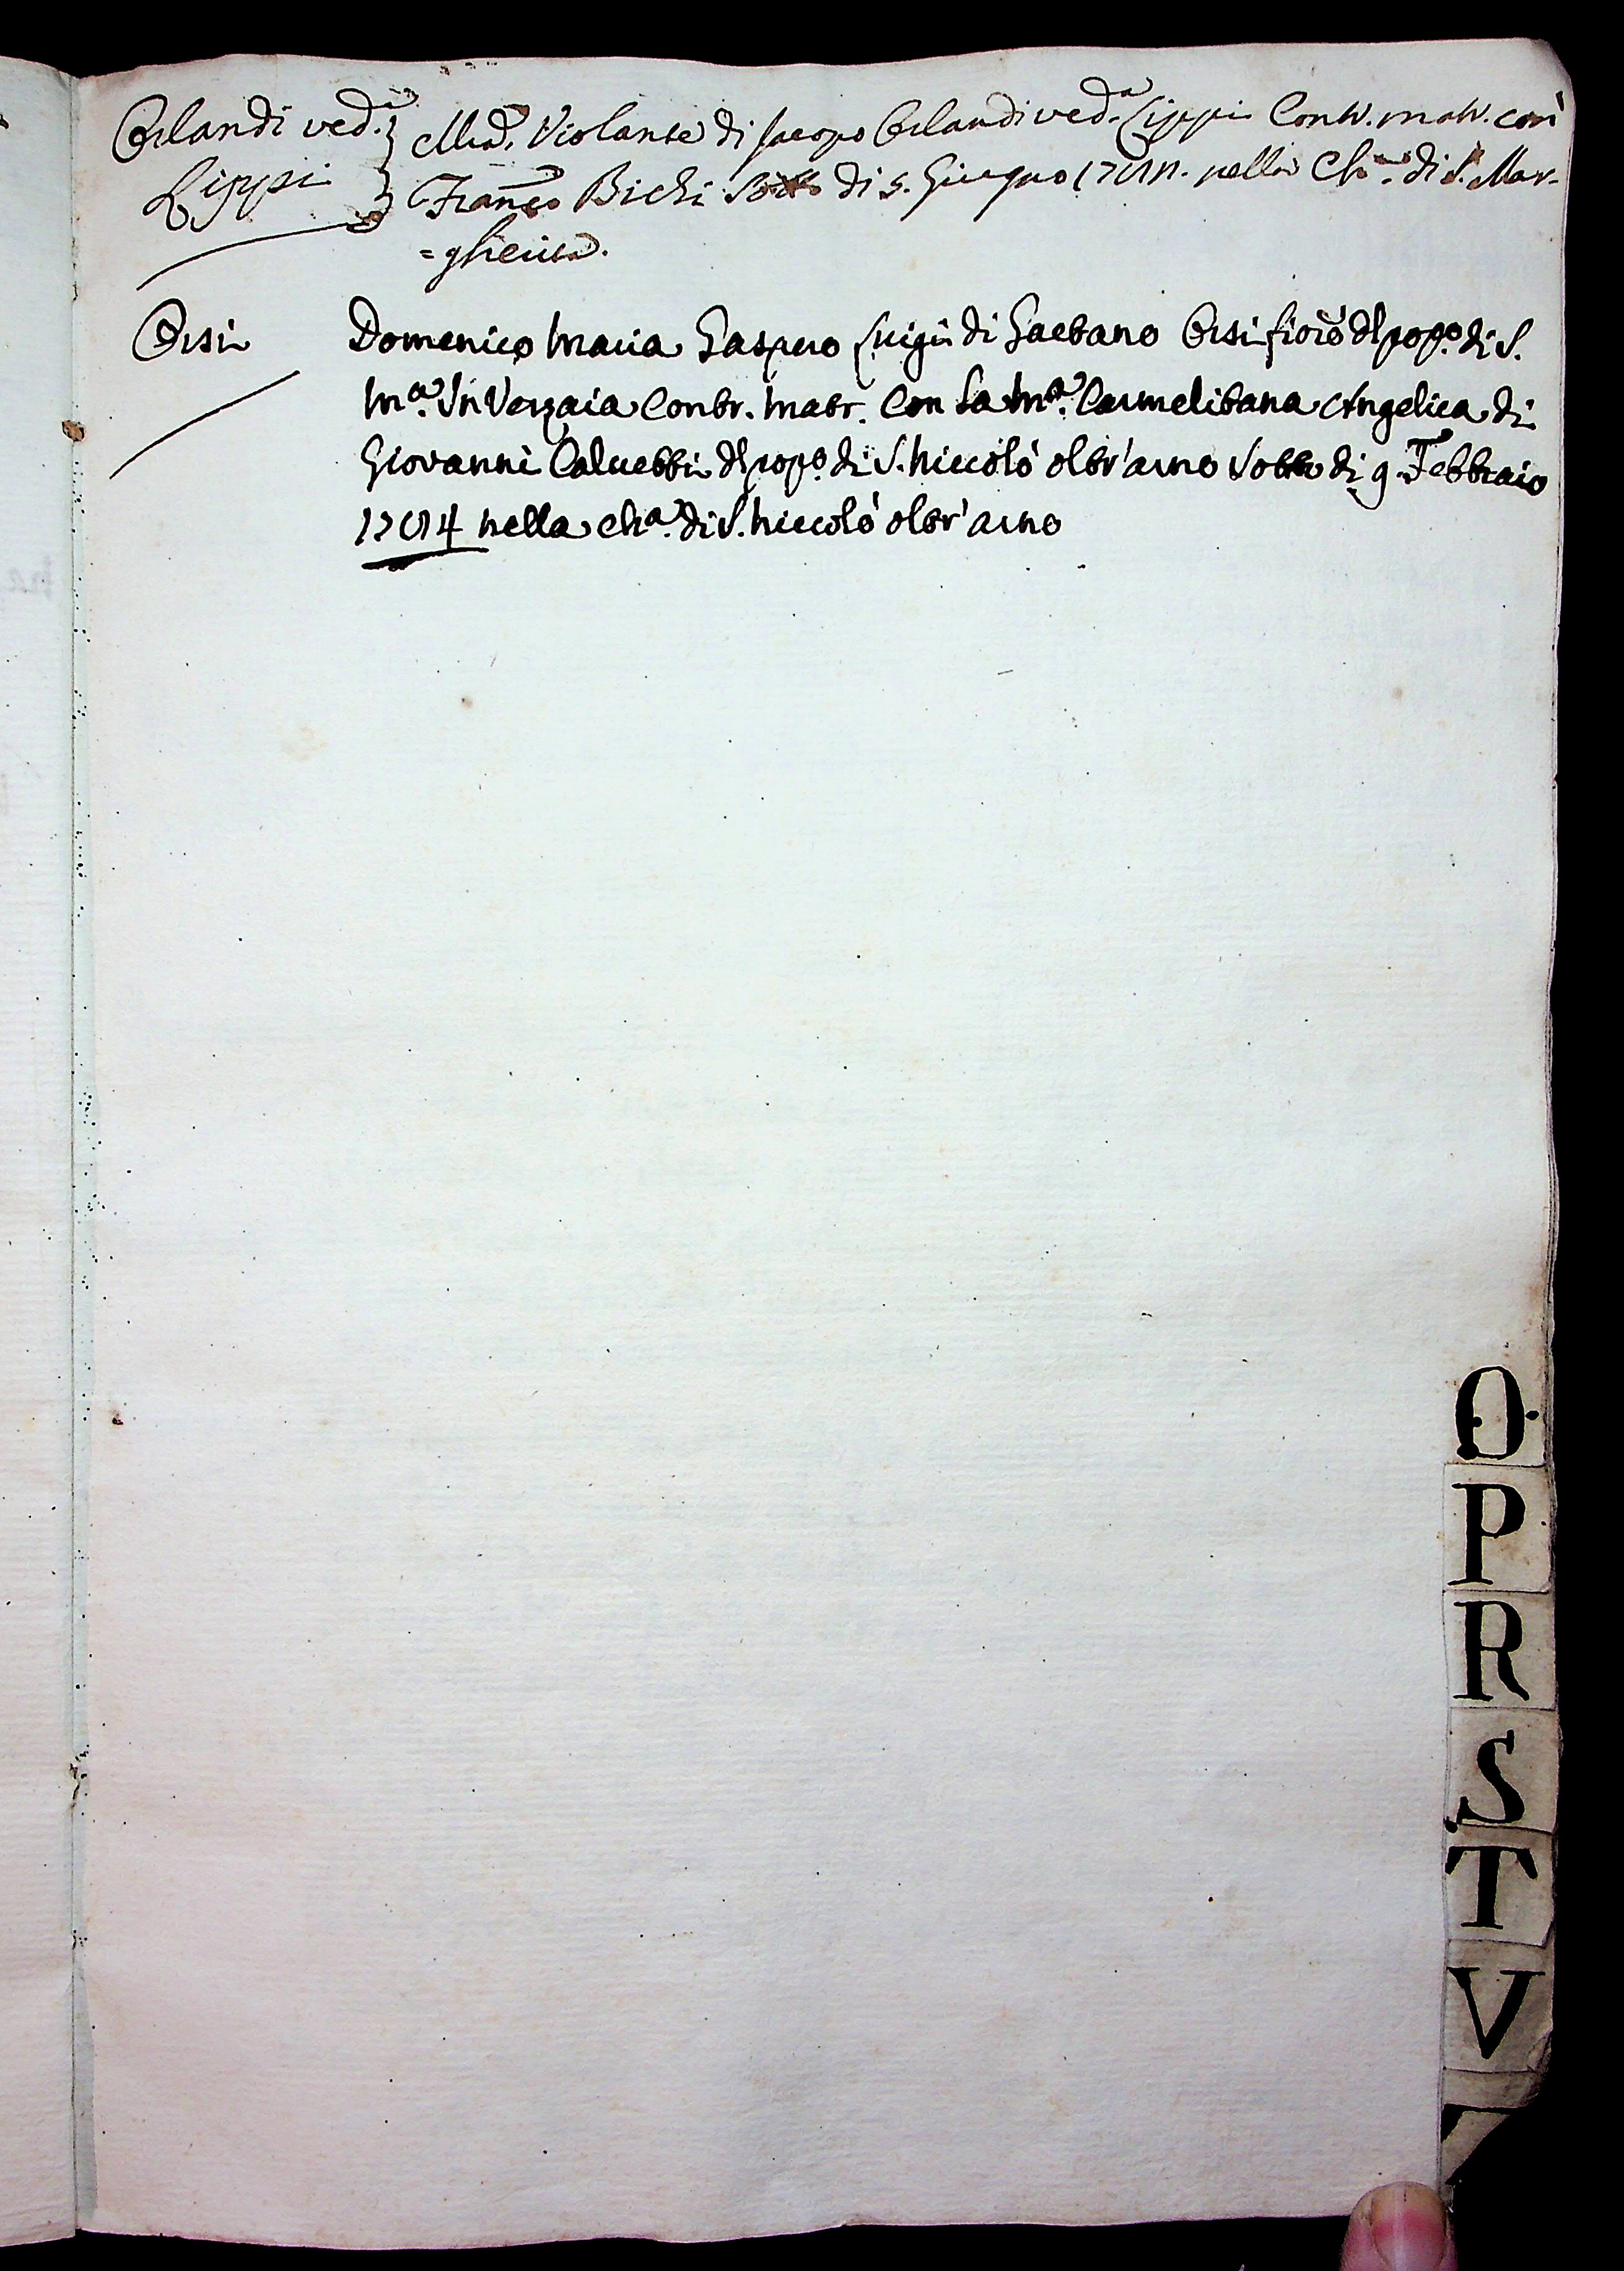 Orlandi ved.a
Lippi
Mad.a Violante di Jacopo Orlandi ved.a Lippi Contr. matr. con
Franco Bichi Sotto di 5. Giugno nella Ch.a di S. Mar-
=gherita.
Orsi
Domenico Maria Gaspero Luigi di Gaetano Orsi fioro dl popo. di S.
Ma. In Verzaia Contr. Matr. Con la Ma. Carmelitana Angelica di
Giovanni Calvetti dl popo. di S. Niccolò oltr'arno Sotto di 9. Febbraio
nella cha. di S. Niccolò oltr'arno
O
P
R
S
T
V